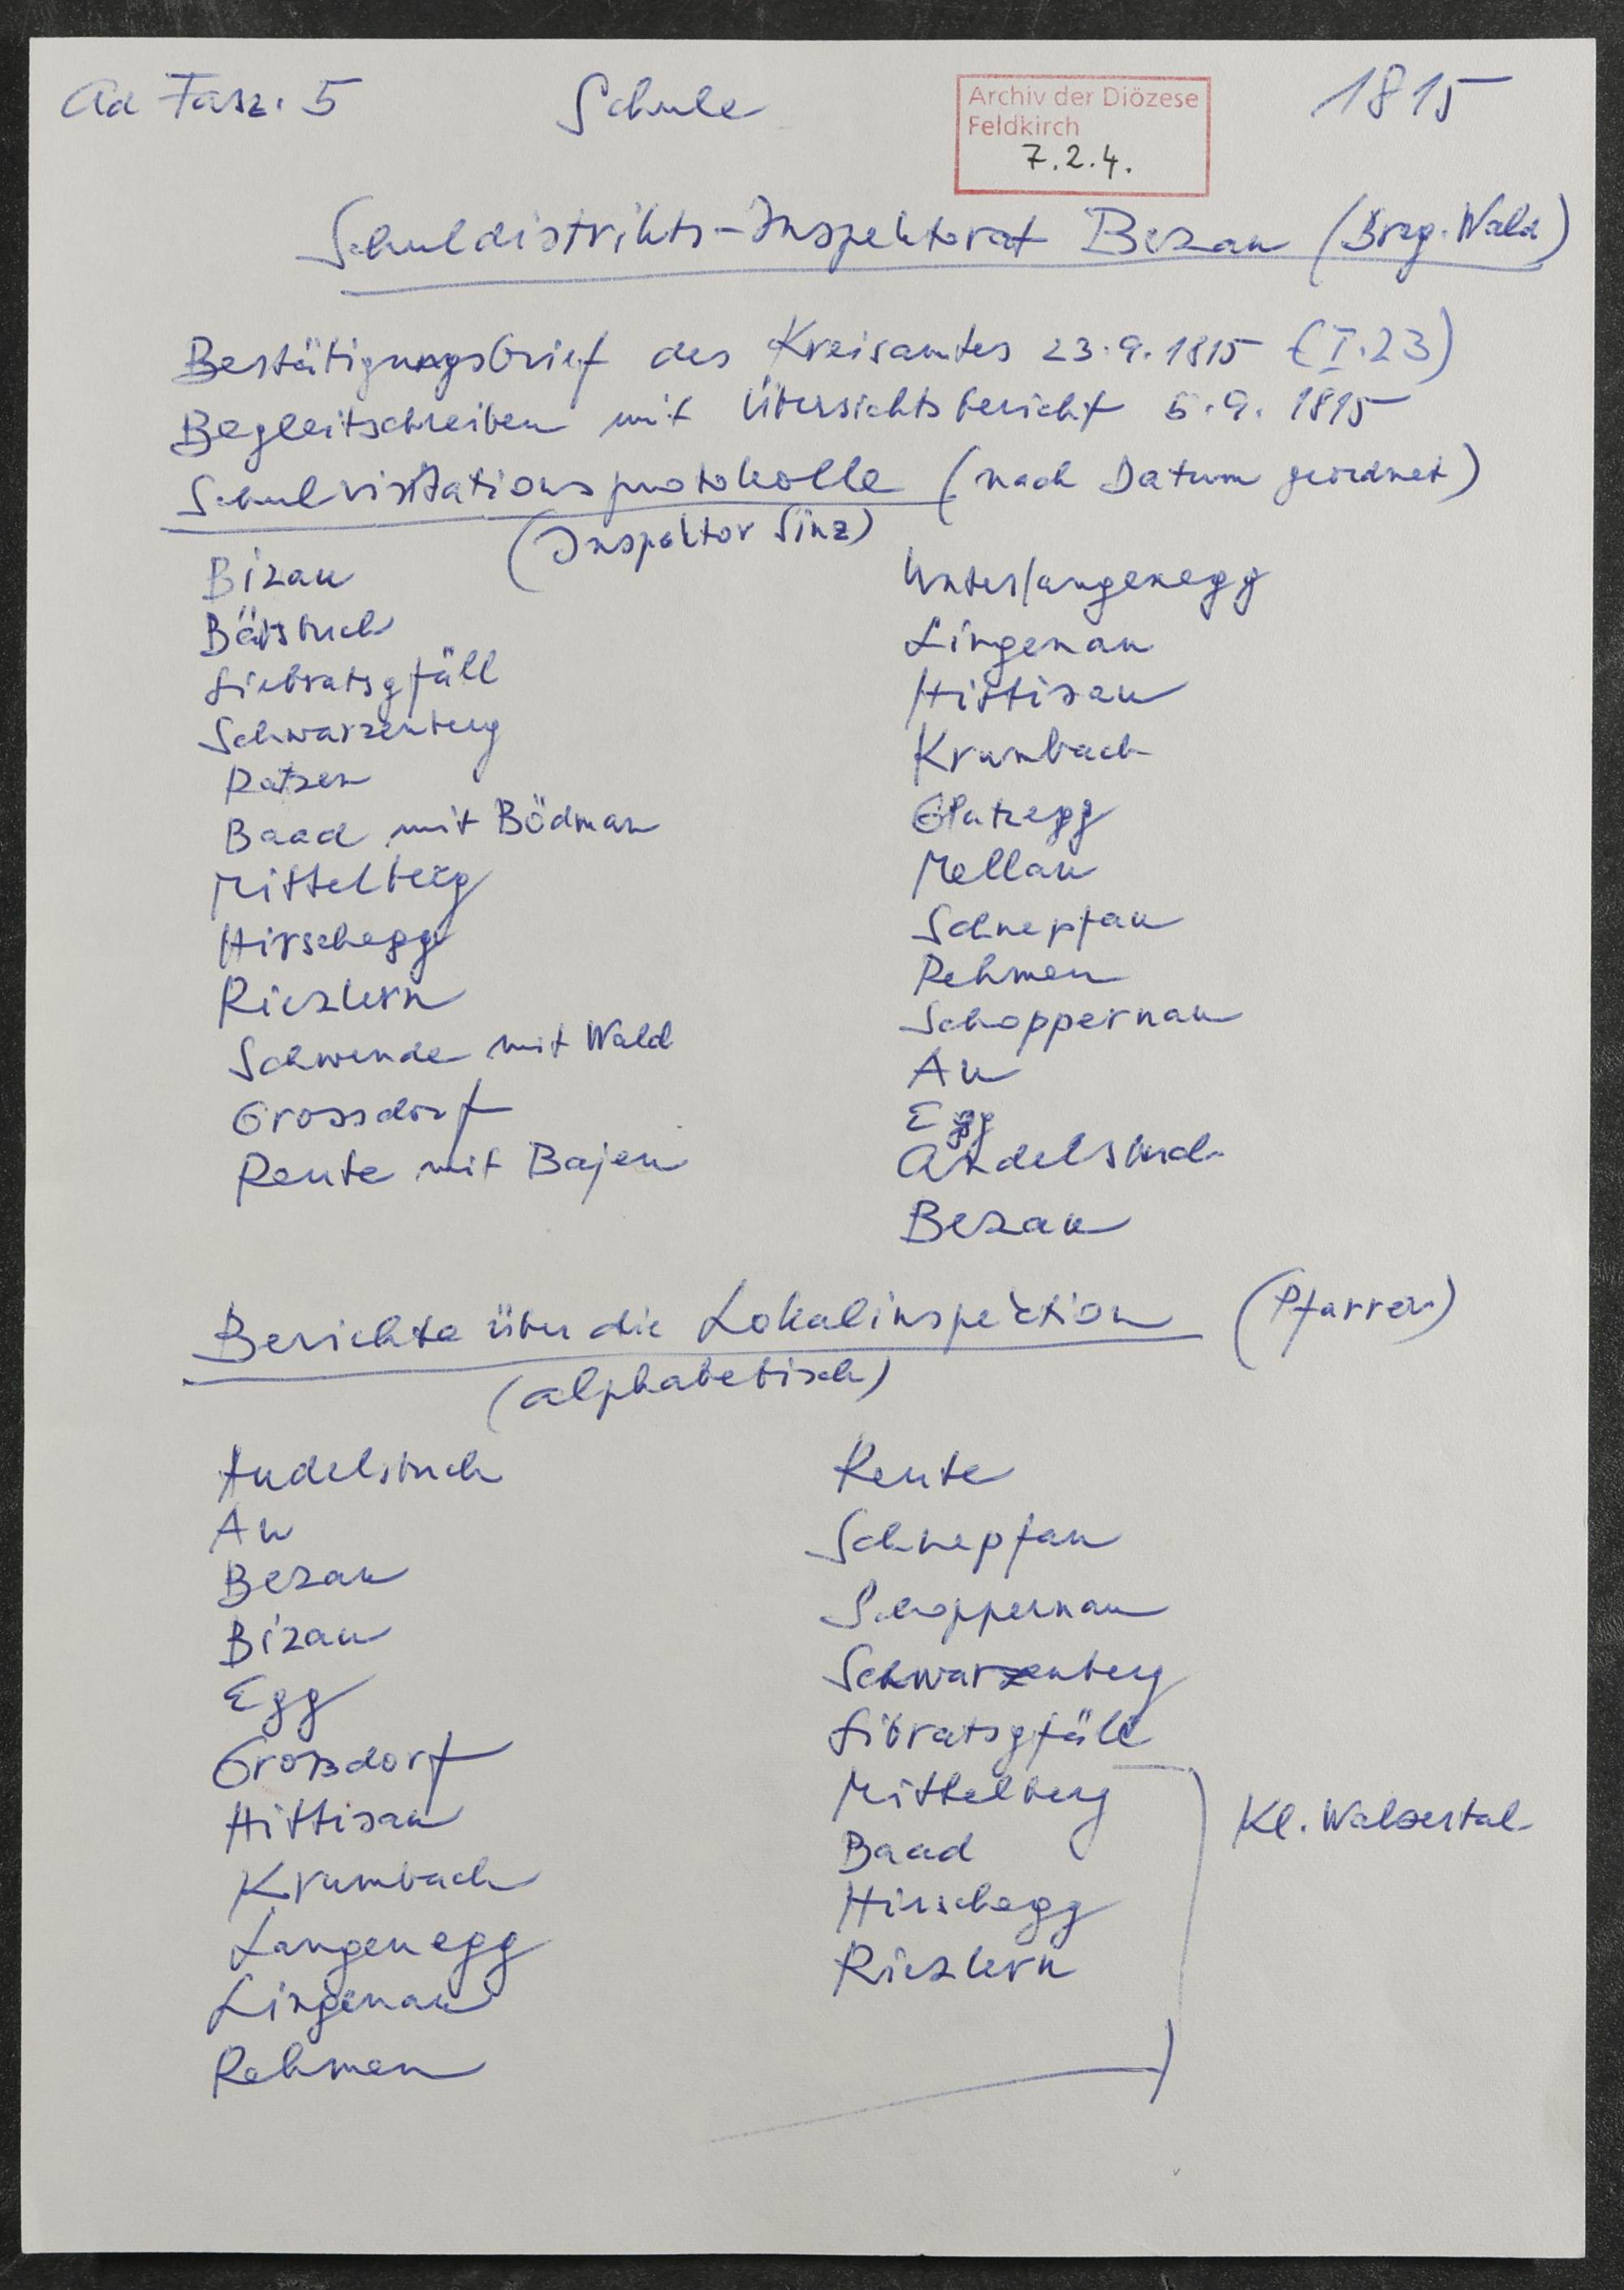 Ad Fasz. 5 Schule 1815
Archiv der Diözese
Feldkirch
7.2.4.
Schuldistrikts-Inspektorat Bezau (Breg. Wald)
Bestätigungsbrief des Kreisamtes 23.9.1815 (I.23)
Begleitschreiben mit Übersichtsbericht 5.9.1815
Schulvisitationsprotokolle (nach Datum geordnet)
(Inspektor Sinz)
Bizau
Bätsbuch
Siebratsgfäll
Schwarzenberg
Ratzen
Baad mit Bödmen
Mittelberg
Hirschegg
Riezlern
Schwende mit Wald
Grossdorf
Reute mit Bajen
Unterlangenegg
Lingenau
Hittisau
Krumbach
Glatzegg
Mellau
Schnepfau
Rehmen
Schoppernau
Au
Egg
Andelsbuch
Bezau
Berichte über die Lokalinspektion (Pfarrer)
(alphabetisch)
Andelsbuch
Au
Bezau
Bizau
Egg
Großdorf
Hittisau
Krumbach
Langenegg
Lingenau
Rehmen
Reute
Schnepfau
Schoppernau
Schwarzenberg
Sibratsgfäll
Mittelberg
Baad
Hirschegg
Riezlern
Kl. Walsertal